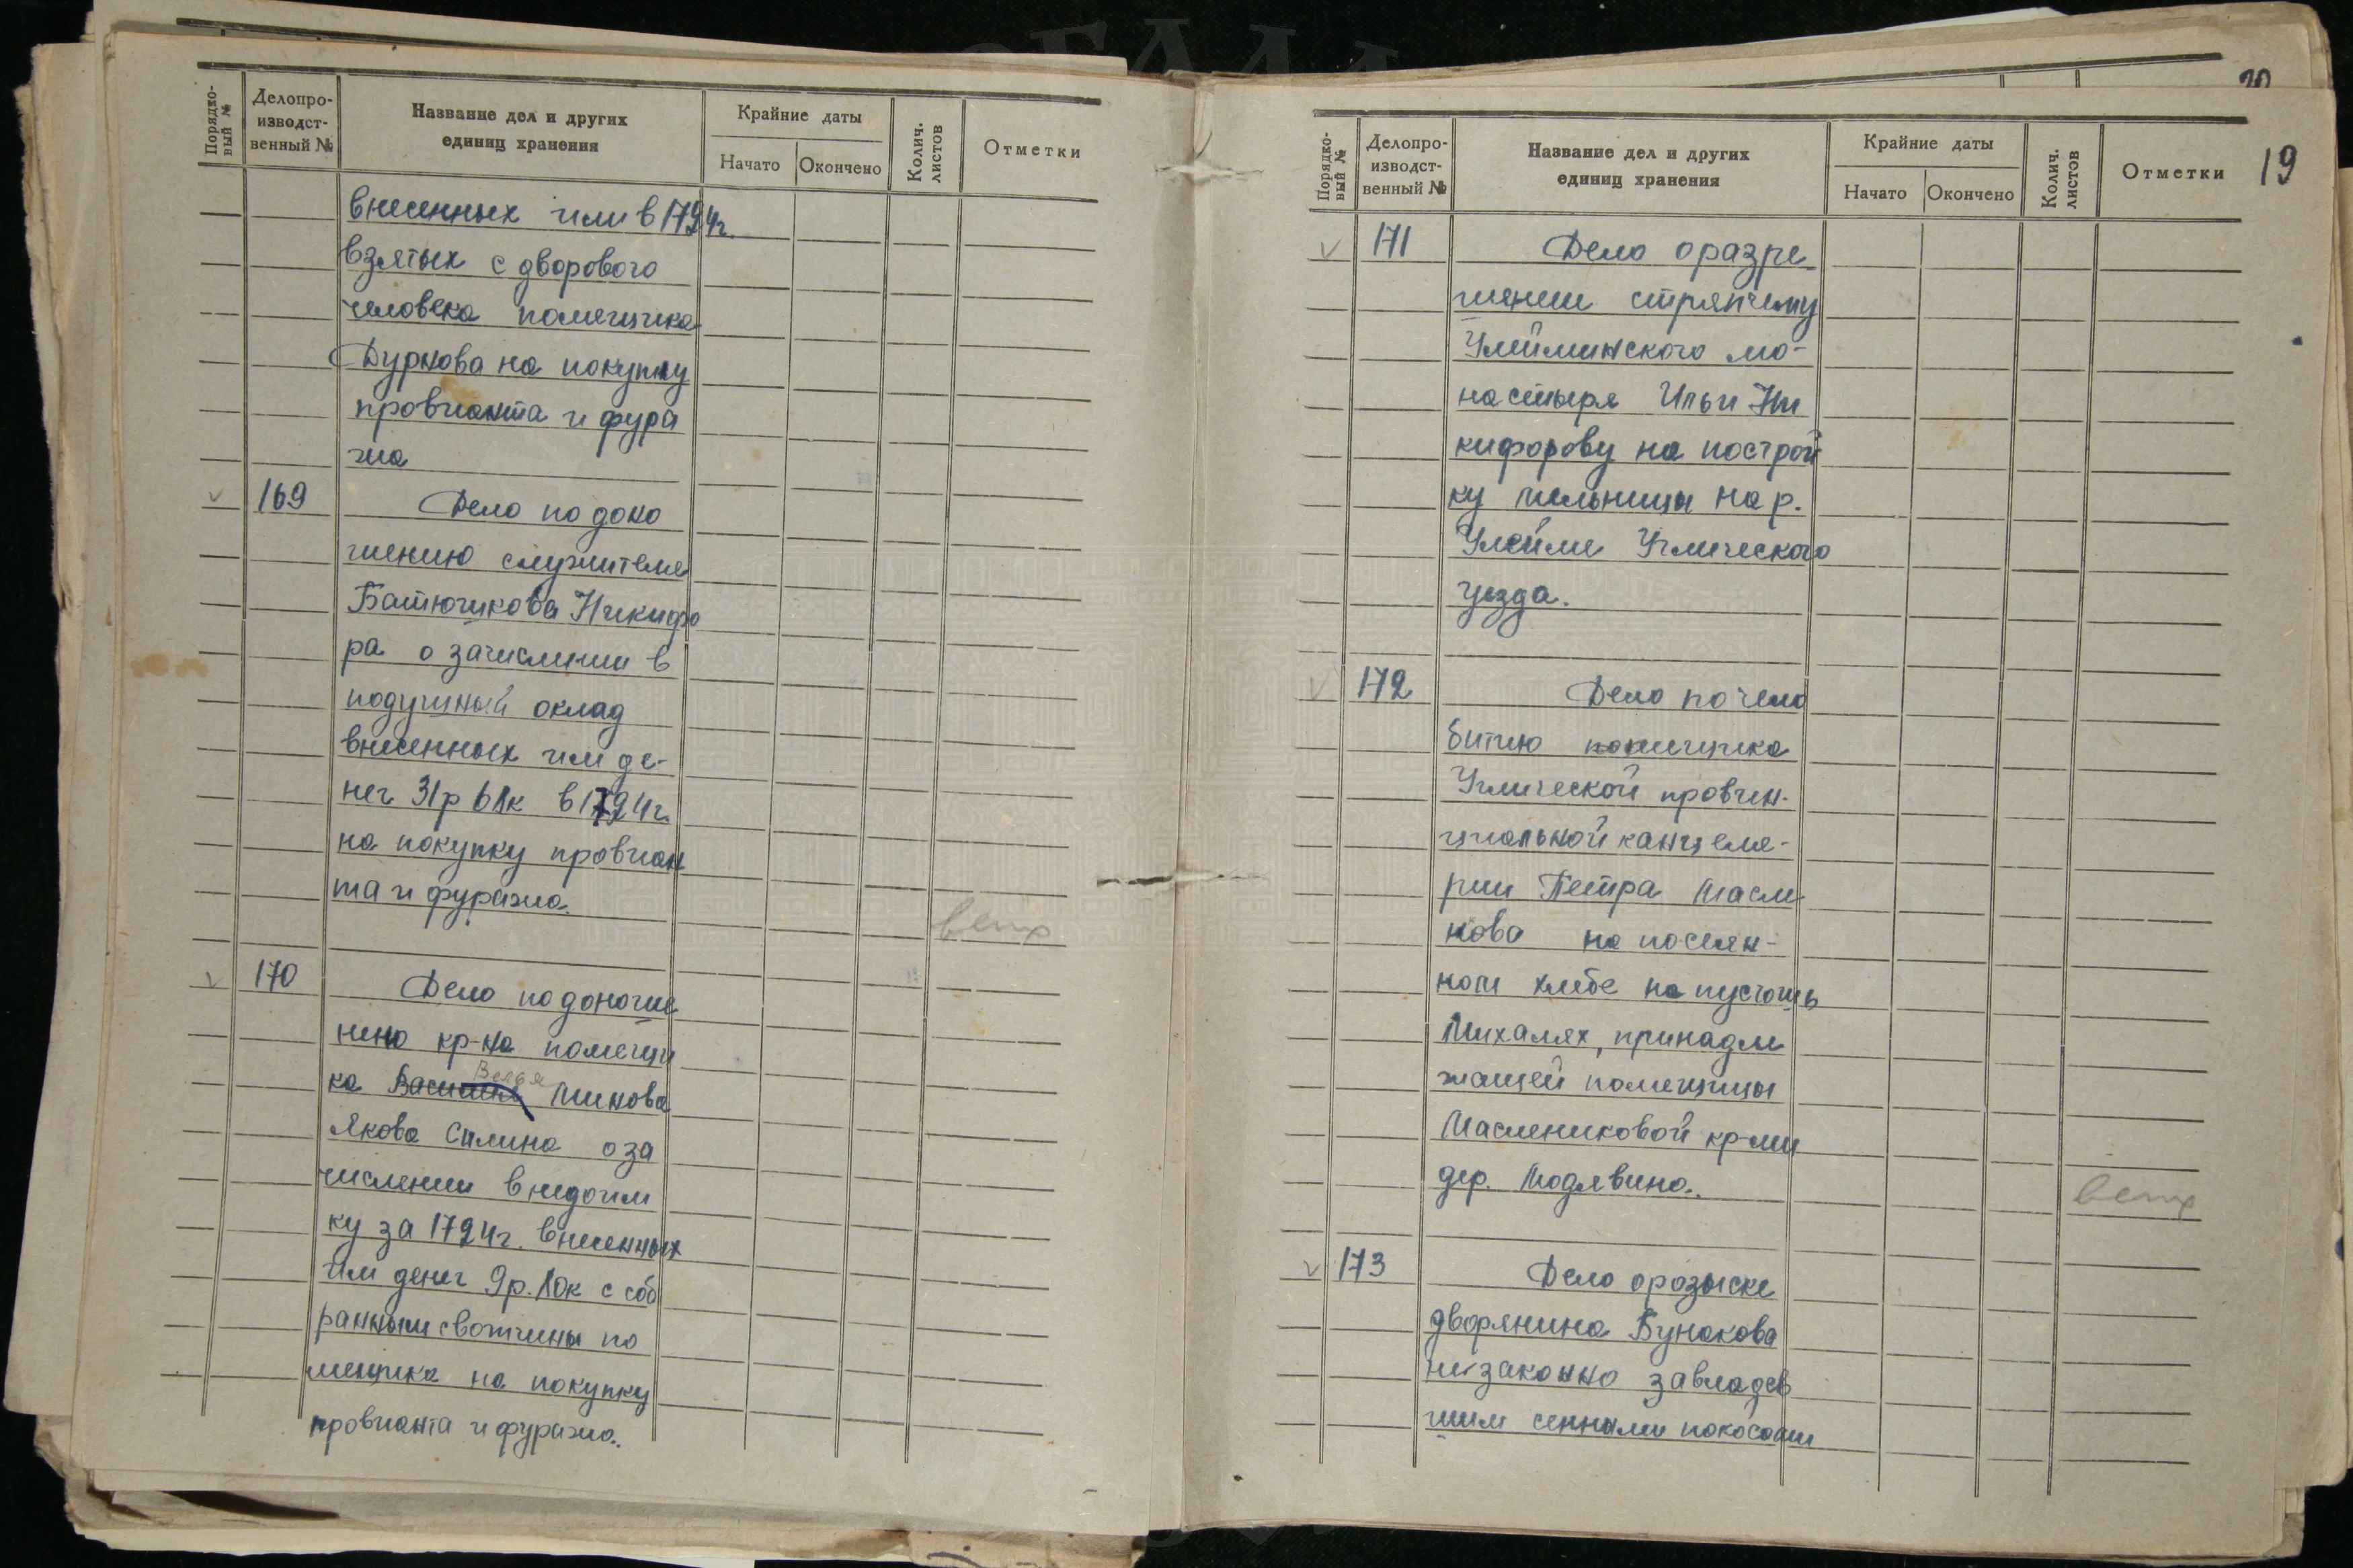 Порядко-
вый №
Делопро-
изводст-
венный №
Название дел и других
единиц хранения
Крайние даты
Начато
Окончено
Колич.
листов
Отметки
внесенных им в 1724г.
взятых с дворового
человека помещика
Дурнова на покупку
провианта и фура
жа
169
Дело по доно
шению служителя
Батюшкова Никифо
ра о зачислении в
подушный оклад
внесенных им де-
нег 31р 61к в 1724г.
на покупку провиан
та и фуража.
ветх
170
Дело по доноше
нию кр-на помещи
ка Василия
Якова Силина о за
числении в недоим
ку за 1724г. внесенных
им денег 9р. 10к с соб
ранными с вотчины по
мещика на покупку
провианта и фуража.
20
19
Порядко-
вый №
Делопро-
изводст-
венный №
Название дел и других
единиц хранения
Крайние даты
Начато
Окончено
Колич.
листов
Отметки
171
Дело о разре
шении стряпчему
Улейминского мо-
настыря Ильи Ни
кифорову на построй
ку мельницы на р.
Улейме Угличского
уезда.
172
Дело по чело
битию помещика
Угличской провин-
циальной канцеля-
рии Петра Масле
кова на посеян-
ном хлебе на пустошь
Михалях, принадле
жащей помещицы
Маслениковой кр-ми
дер. Модявино.
ветх
173
Дело о розыске
дворянина Бунакова
незаконно завладев
шим сенными покосами